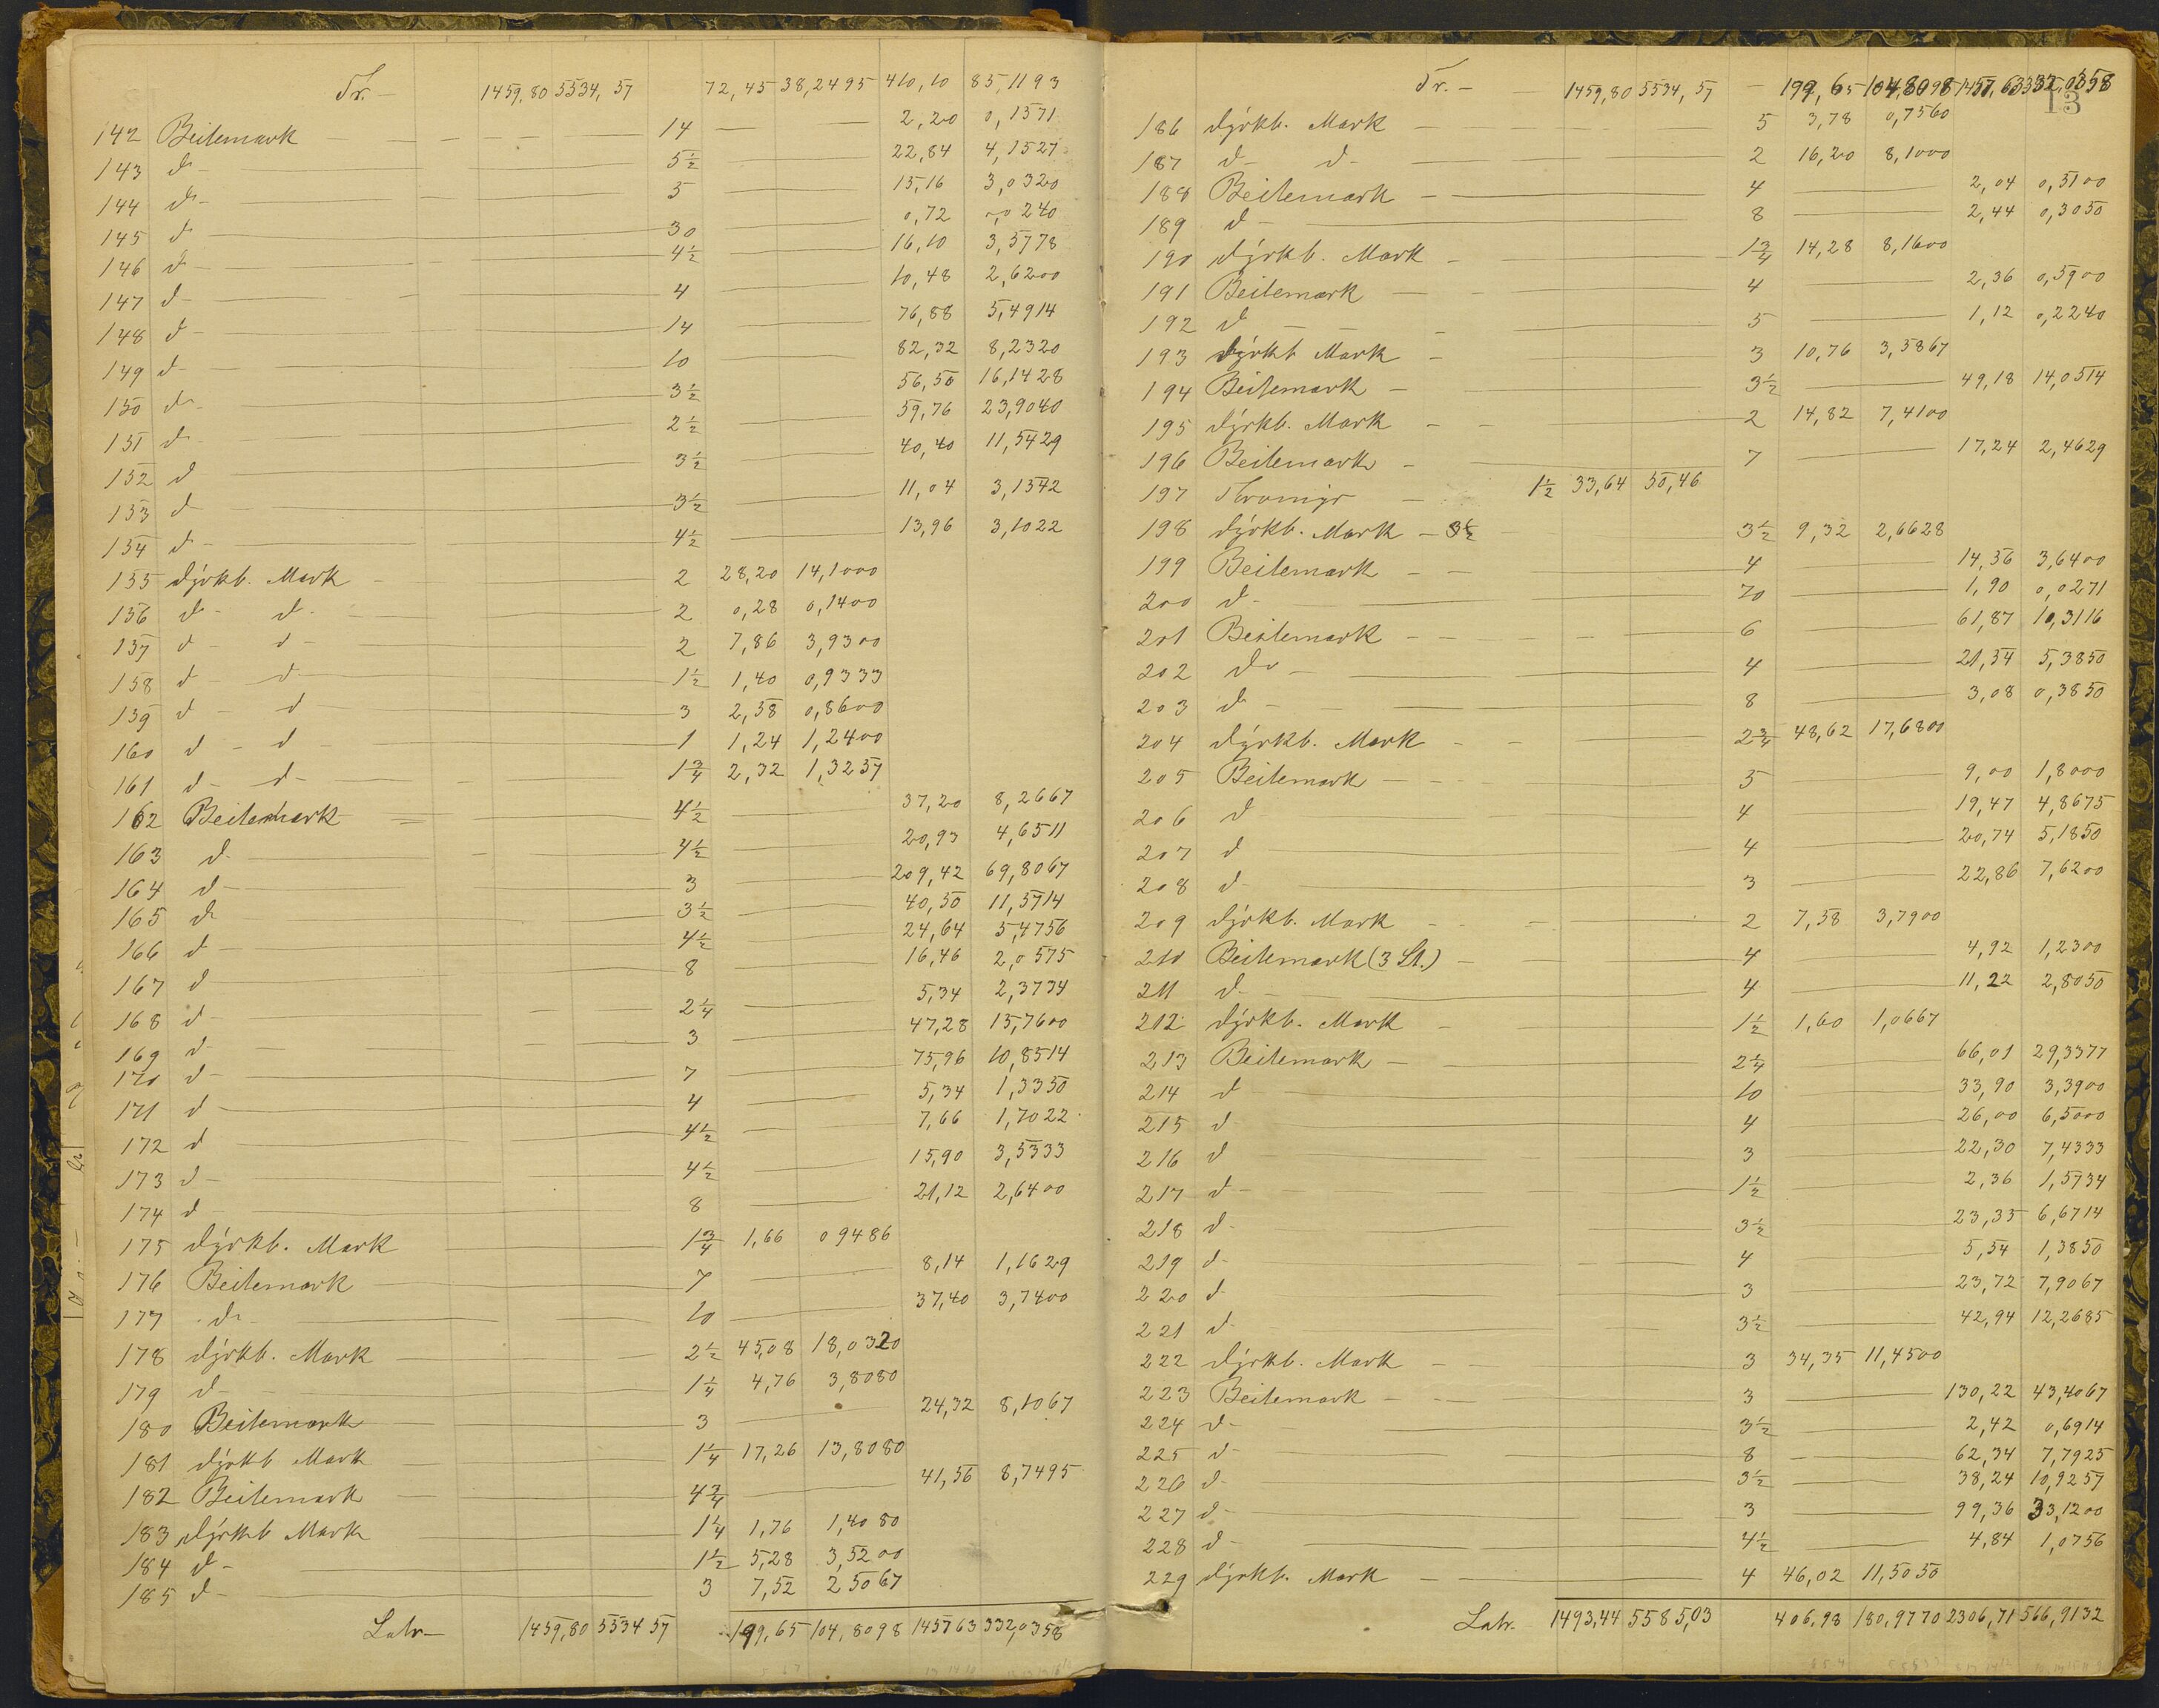 Tr. — 1459,80 5534,57 72,45 38,2495 410,10 85,1193
142 Beitemark — 14 — 2,20 0,1571
143 do — 5½ — 22,84 4,1527
144 do — 5 — 15,16 3,0320
145 do — 30 — 0,72 0,0240
146 do — 4½ — 16,10 3,5778
147 do — 4 — 10,48 2,6200
148 do — 14 — 76,88 5,4914
149 do — 10 — 82,32 8,2320
150 do — 3½ — 56,50 16,1428
151 do — 2½ — 59,76 23,9040
152 do — 3½ — 40,40 11,5429
153 do — 3½ — 11,04 3,1542
154 do — 4½ — 13,96 3,1022
155 dyrkb. Mark — 2 28,20 14,1000
156 do — do — 2 0,28 0,1400
157 do — do — 2 7,86 3,9300
158 do — do — 1½ 1,40 0,9333
159 do — do — 3 2,58 0,8600
160 do — do — 1 1,24 1,2400
161 do — do — 1¾ 2,32 1,3257
162 Beitemark — 4½ — 37,20 8,2667
163 do — 4½ — 20,93 4,6511
164 do — 3 — 209,42 69,8067
165 do — 3½ — 40,50 11,5714
166 do — 4½ — 24,64 5,4756
167 do — 8 — 16,46 2,0575
168 do — 2¼ — 5,34 2,3734
169 do — 3 — 47,28 15,7600
170 do — 7 — 75,96 10,8514
171 do — 4 — 5,34 1,3350
172 do — 4½ — 7,66 1,7022
173 do — 4½ — 15,90 3,5333
174 do — 8 — 21,12 2,6400
175 dyrkb. Mark — 1¾ 1,66 0 9486
176 Beitemark — 7 — 8,14 1,1629
177 do — 10 — 37,40 3,7400
178 dyrkb. Mark — 2½ 45,08 18,0320
179 do — 1¼ 4,76 3,8080
180 Beitemark — 3 — 24,32 8,1067
181 dyrkb Mark — 1¼ 17,26 13,8080
182 Beitemark — 4¾ — 41,56 8,7495
183 dyrkb Mark — 1¼ 1,76 1,4080
184 do — 1½ 5,28 3,5200
185 do — 3 7,52 2 5067
Latr. — 1459,80 5534 57 199,65 104,8098 1457 63 332,0358
13
Tr. — 1459,80 5534,57 — 199,65 104,8098 1457,63 332,0358
186 dyrkb. Mark — 5 3,78 0,7560
187 do — do — 2 16,20 8,1000
188 Beitemark — 4 — 2,04 0,5100
189 do — 8 — 2,44 0,3050
190 dyrkb. Mark — 1¾ 14,28 8,1600
191 Beitemark — 4 — 2,36 0,5900
192 do — 5 — 1,12 0,2240
193 dyrkb Mark — 3 10,76 3,5867
194 Beitemark — 3½ — 49,18 14,0514
195 dyrkb. Mark — 2 14,82 7,4100
196 Beitemark — 7 — 17,24 2,4629
197 Kromyr — 1½ 33,64 50,46
198 dyrkb. Mark — 3½ 3½ 9,32 2,6628
199 Beitemark — 4 — 14,56 3,6400
200 do — 70 — 1,90 0,0271
201 Beitemark — 6 — 61,87 10,3116
202 do — 4 — 21,54 5,3850
203 do — 8 — 3,08 0,3850
204 dyrkb. Mark — 2¾ 48,62 17,6800
205 Beitemark — 5 — 9,00 1,8000
206 do — 4 — 19,47 4,8675
207 do — 4 — 20,74 5,1850
208 do — 3 — 22,86 7,6200
209 dyrkb. Mark — 2 7,58 3,7900
210 Beitemark (3 St.) — 4 — 4,92 1,2300
211 do — 4 — 11,22 2,8050
212 dyrkb. Mark — 1½ 1,60 1,0667
213 Beitemark — 2¼ — 66,01 29,3377
214 do — 10 — 33,90 3,3900
215 do — 4 — 26,00 6,5000
216 do — 3 — 22,30 7,4333
217 do — 1½ — 2,36 1,5734
218 do — 3½ — 23,35 6,6714
219 do — 4 — 5,54 1,3850
220 do — 3 — 23,72 7,9067
221 do — 3½ — 42,94 12,2685
222 dyrkb. Mark — 3 34,35 11,4500
223 Beitemark — 3 — 130,22 43,4067
224 do — 3½ — 2,42 0,6914
225 do — 8 — 62,34 7,7925
226 do — 3½ — 38,24 10,9257
227 do — 3 — 99,36 33,1200
228 do — 4½ — 4,84 1,0756
229 dyrkb. Mark — 4 46,02 11,5050
Latr. 1493,44 5585,03 406,98 180,9770 2306,71 566,9132